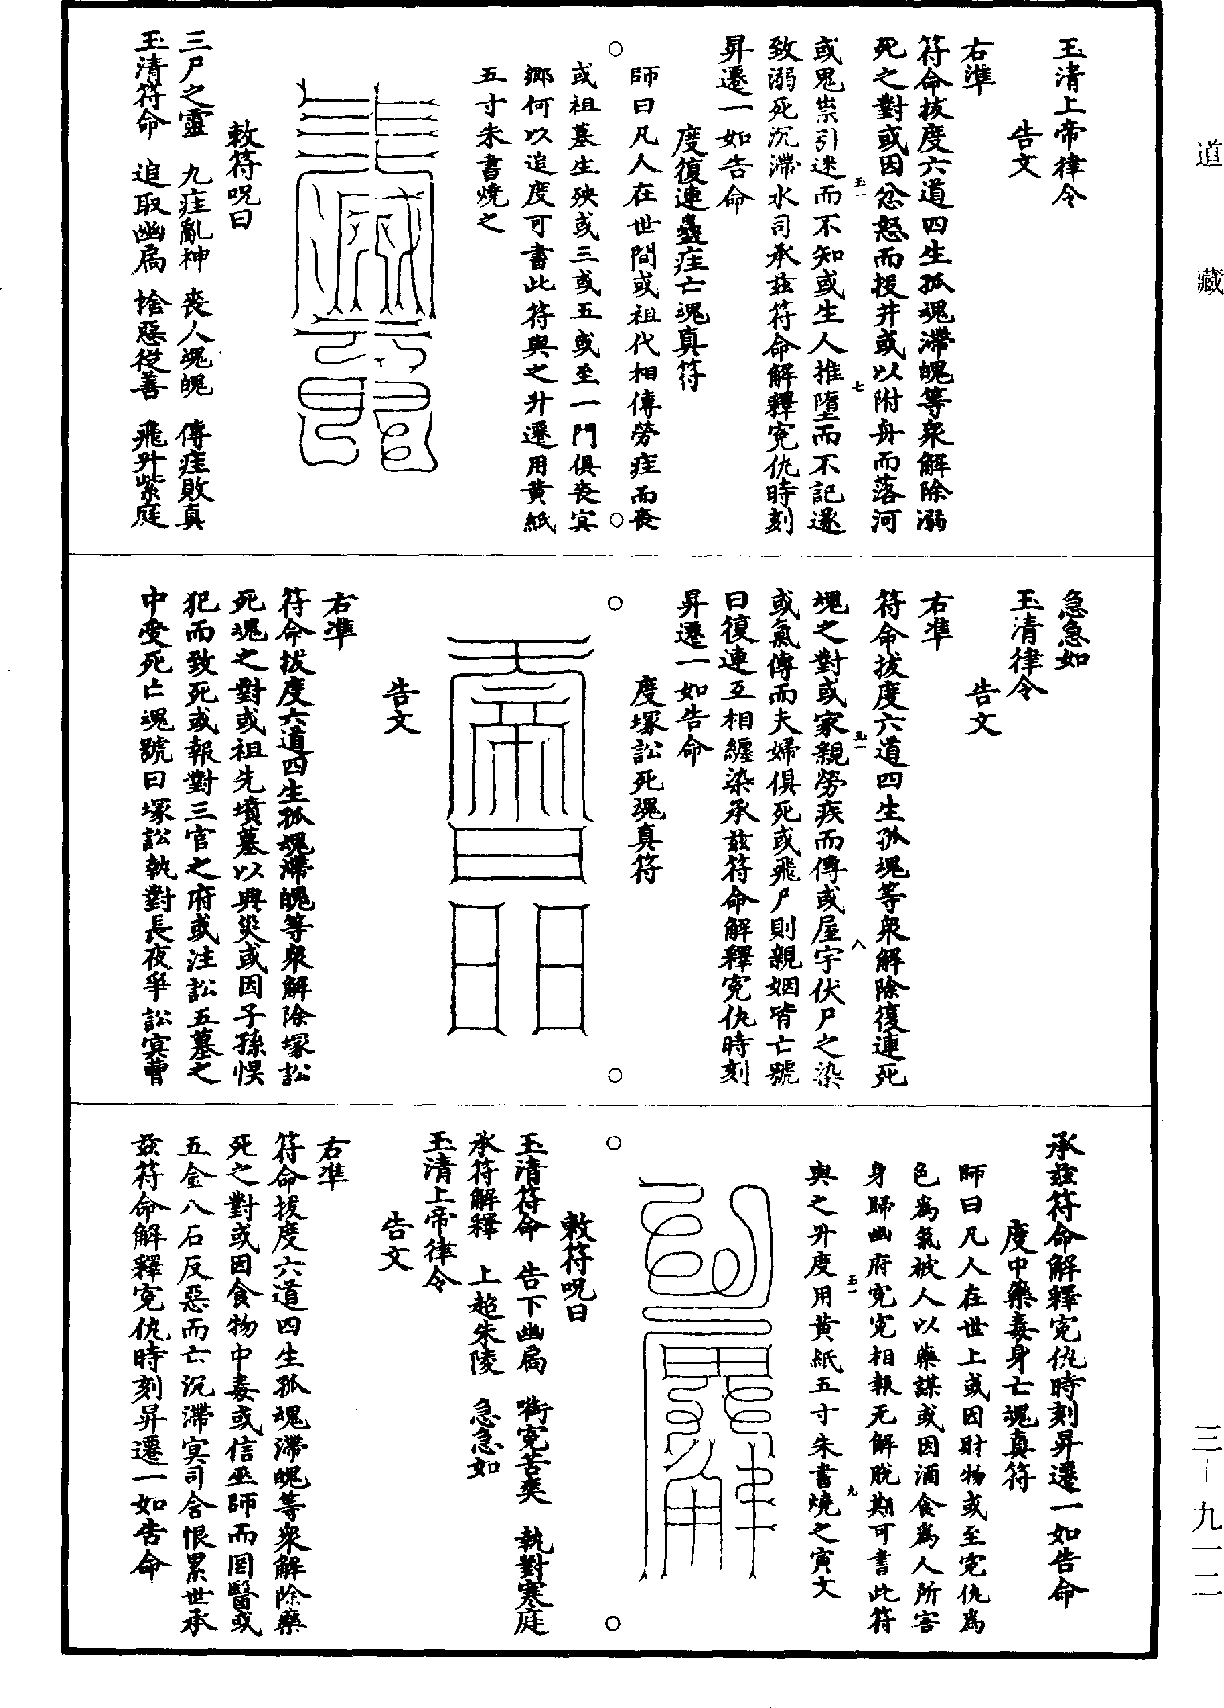 道藏
三-九一二
玉清上帝律令
告文
右準
符命拔度六道四生孤魂滯魄等衆解除溺
死之對或因忿怒而投井或以附舟而落河
或鬼祟引迷而不知或生人推墮而不記遂
致溺死沉滯水司承茲符命解釋寃仇時刻
昇遷一如告命
度復連蠱疰亡魂真符
師曰凡人在世間或祖代相傳勞疰而喪
或祖墓生殃或三或五或至一門俱喪寘
鄉何以追度可書此符與之升遷用黃紙
五寸朱書燒之
敕符呪曰
三尸之靈 九疰亂神 喪人魂魄 傳疰敗真
玉清符命 追取幽扃 捨惡從善 飛升紫庭
急急如
玉清律令
告文
右準
符命拔度六道四生孤魂等衆解除復連死
魂之對或家親勞疾而傳或屋宇伏尸之染
或氣傳而夫婦俱死或飛尸則親姻皆亡號
曰復連互相纏染承茲符命解釋寃仇時刻
昇遷一如告命
度塚訟死魂真符
告文
右準
符命拔度六道四生孤魂滯魄等衆解除塚訟
死魂之對或祖先墳墓以興災或因子孫悞
犯而致死或報對三官之府或注訟五墓之
中受死亡魂號曰塚訟執對長夜爭訟寘曹
承茲符命解釋寃仇時刻昇遷一如告命
度中藥毒身亡魂真符
師曰凡人在世上或因財物或至寃仇爲
色爲氣被人以藥謀或因酒食爲人所害
身歸幽府寃寃相報无解脫期可書此符
與之升度用黃紙五寸朱書燒之寅文
敕符呪曰
玉清符命 告下幽扃 銜寃苦爽 執對寒庭
承符解釋 上超朱陵 急急如
玉清上帝律令
告文
右準
符命拔度六道四生孤魂滯魄等衆解除藥
死之對或因食物中毒或信巫師而罔醫或
五金八石反惡而亡沉滯冥司含恨累世承
茲符命解釋寃仇時刻昇遷一如告命